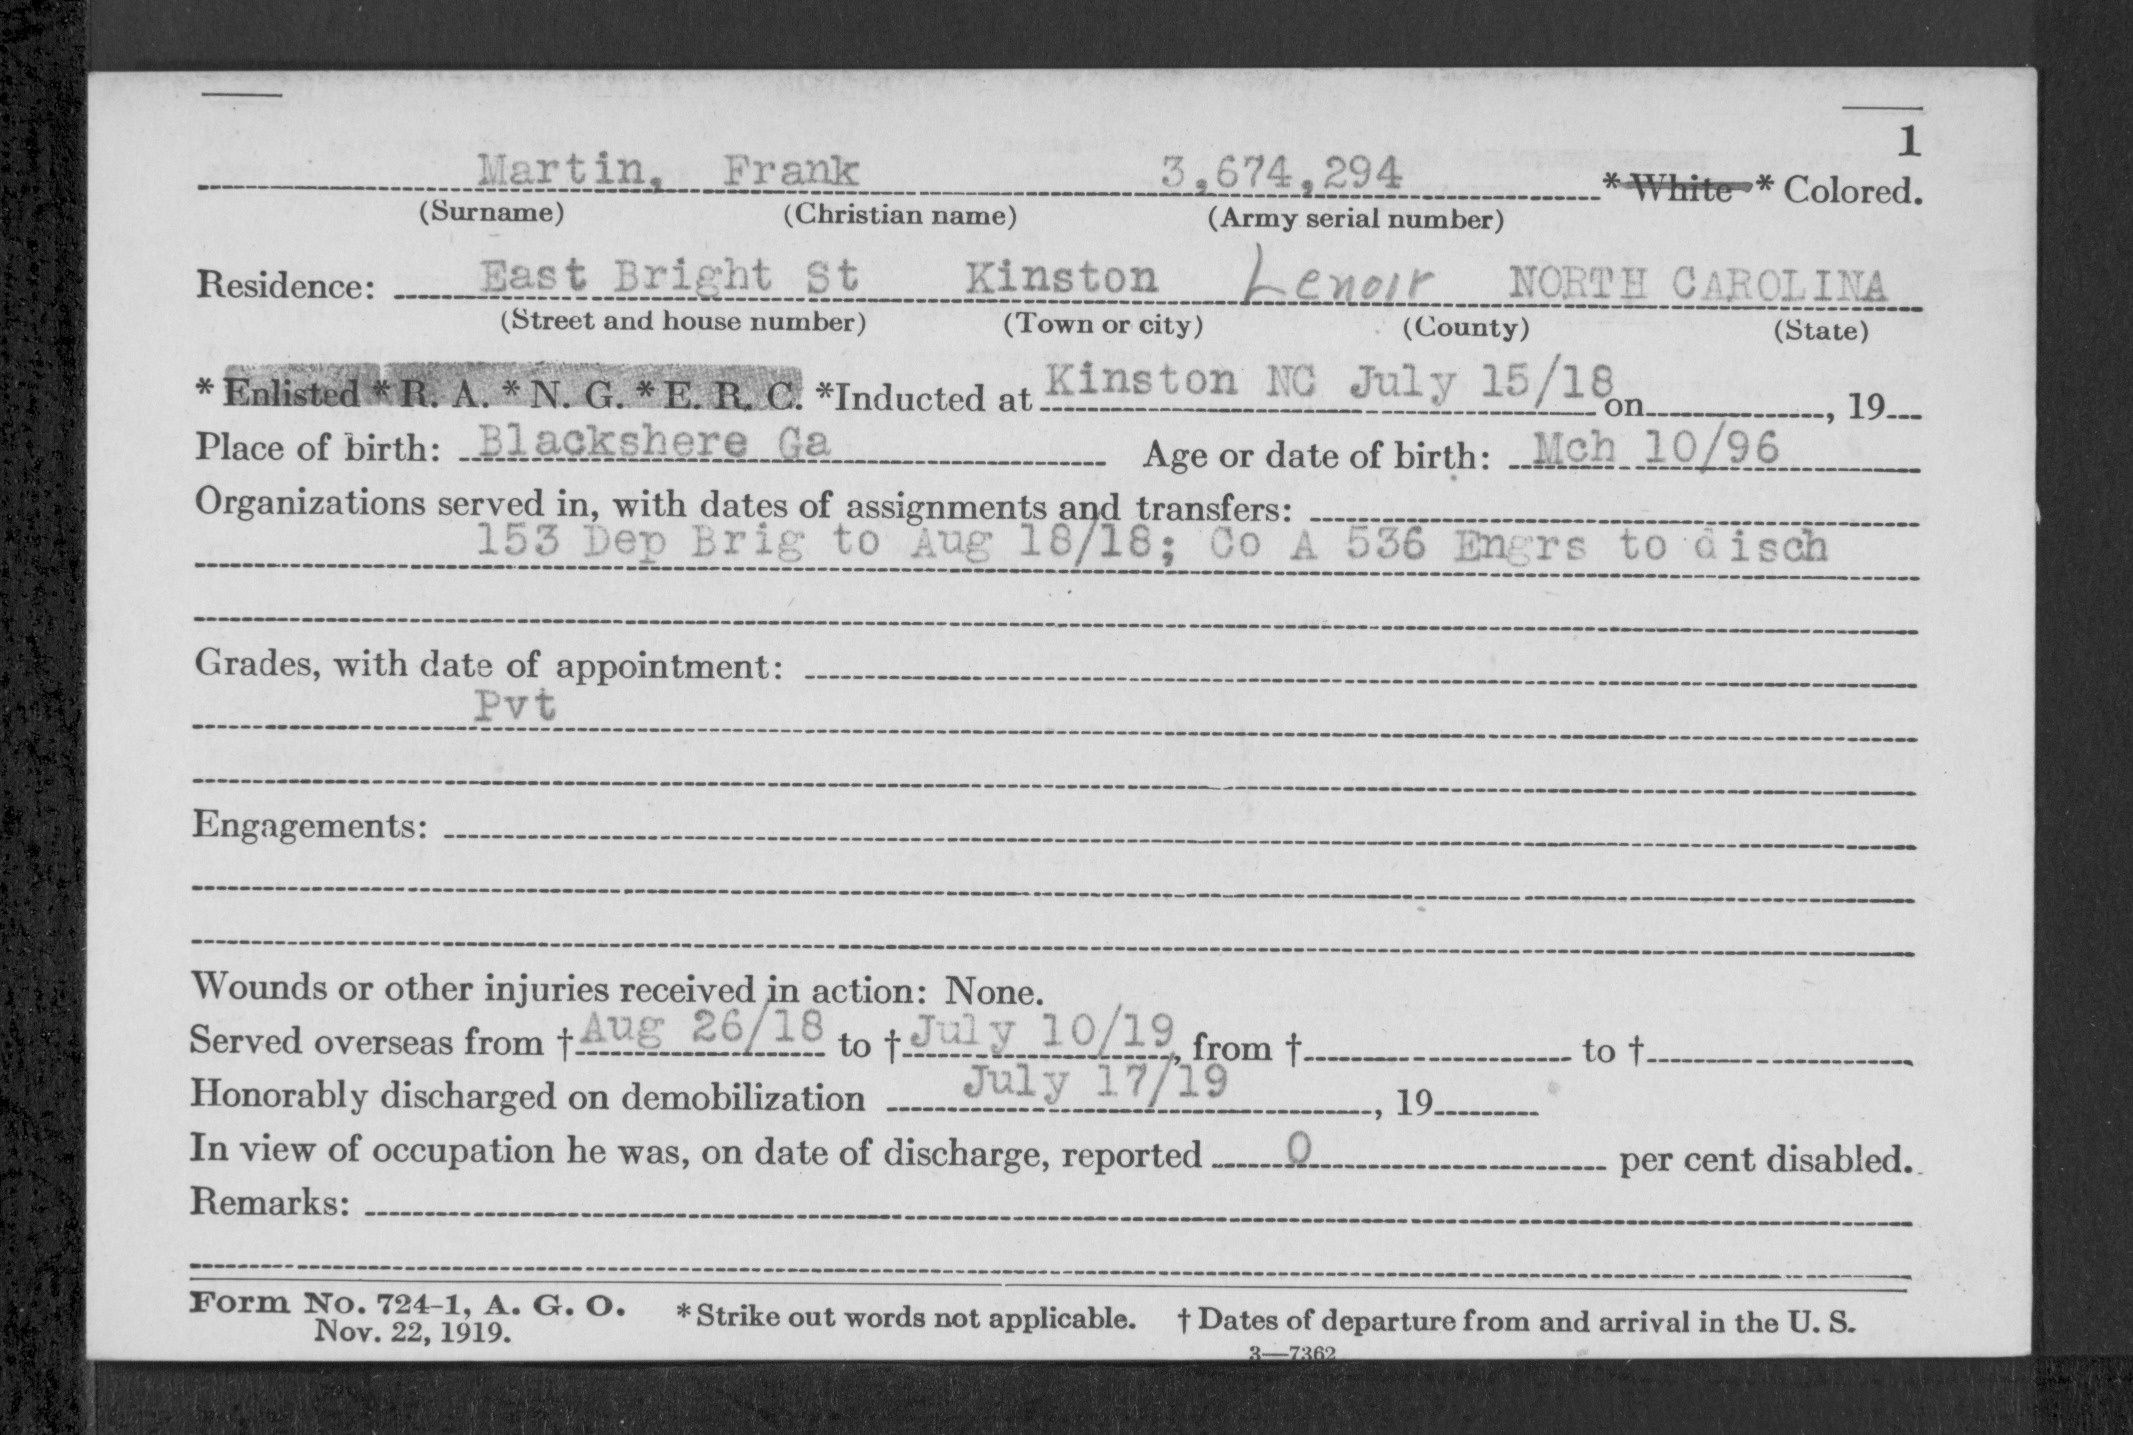 1
Martin, Frank 3,674,294 * White * Colored.
(Surname) (Christian name) (Army serial number)
Residence: East Bright St Kinston Lenoir NORTH CAROLINA
(Street and house number) (Town or city) (County) (State)
* Enlisted * R. A. * N. G. * E. R. C. *Inducted at Kinston NC July 15/18 on , 19
Place of birth: Blackshere Ga Age or date of birth: Mch 10/96
Organizations served in, with dates of assignments and transfers:
153 Dep Brig to Aug 18/18; Co A 536 Engrs to disch
Grades, with date of appointment:
Pvt
Engagements:
Wounds or other injuries received in action: None.
Served overseas from † Aug 26/18 to † July 10/19, from † to †
Honorably discharged on demobilization July 17/19 , 19
In view of occupation he was, on date of discharge, reported 0 per cent disabled.
Remarks:
Form No. 724-1, A. G. O. * Strike out words not applicable. † Dates of departure from and arrival in the U. S.
Nov. 22, 1919.
3—7362